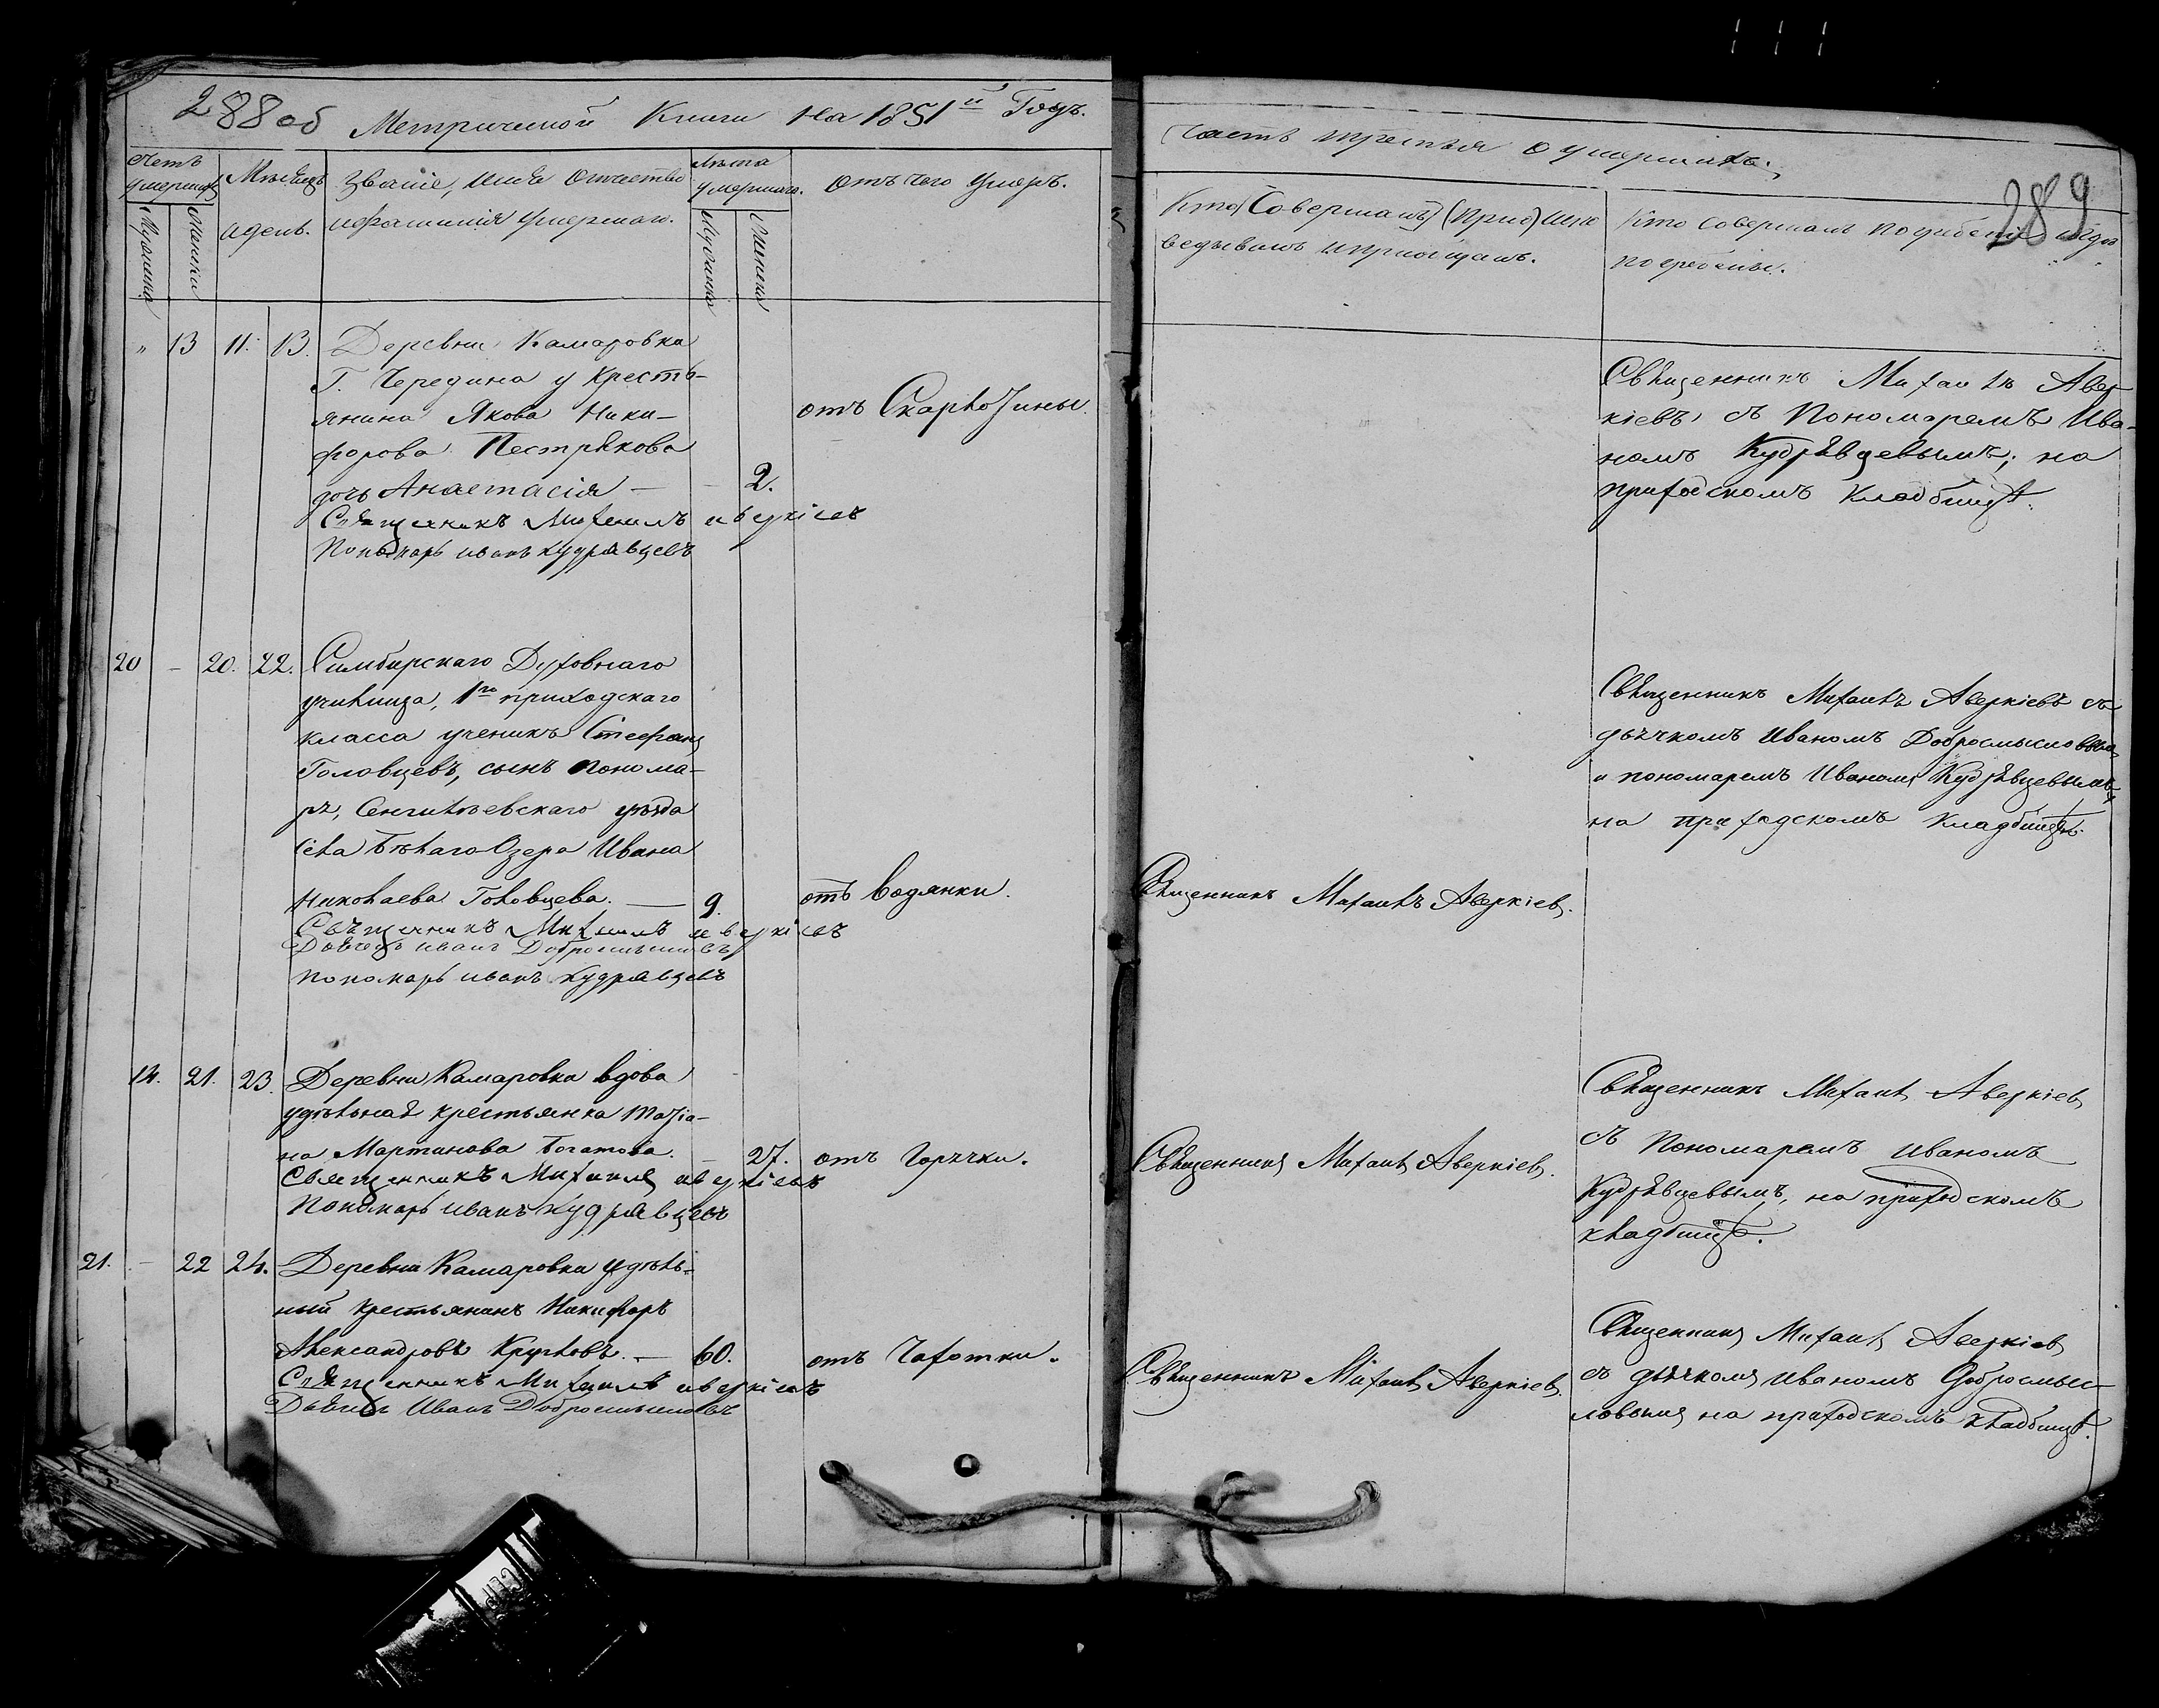 288 об
Метрической Книги на 1851й Годъ.
Счетъ умершихъ
Мужеска
Женска
Мѣсяцъ
и день.
Званіе, имя отчество
и фамилія умершаго.
Лѣта
умершаго.
Мужеска
Женска
Отъ чего умеръ.
Часть третья о умершихъ.
289
Кто (Совершалъ) (Прио) Испо
ведывалъ и приобщалъ.
Кто совершалъ погребеніе и гдѣ
погребены.
" 13 11. 13. Деревни Камаровка
Г. Чередина у кресть-
янина Якова Ники-
форова Пестрякова
дочь Анастасія — — 2.
отъ Скарлозины.
Священникъ Михаилъ Аверкіевъ
Пономарь Иванъ Кудрявцевъ
Священникъ Михаилъ Авер-
кіевъ, съ Пономаремъ Ива-
номъ Кудрявцевымъ; на
приходскомъ Кладбищѣ.
20 – 20. 22. Симбирскаго Духовнаго
училища, 1го приходскаго
класса ученикъ Стефанъ
Головцевъ, сынъ понома-
ря, Сенгилѣевскаго уѣзда
села Бѣлаго Озера Ивана
Николаева Головцева. — 9. отъ водянки.
Священникъ Михаилъ Аверкіевъ
Дьячекъ Иванъ Добросмысловъ
Пономарь Иванъ Кудрявцевъ
Священникъ Михаилъ Аверкіевъ.
Священникъ Михаилъ Аверкіевъ съ
дьячкомъ Иваномъ Добросмысловымъ
и пономаремъ Иваномъ Кудрявцевымъ,
на приходскомъ кладбищѣ.
14. 21. 23. Деревни Камаровки вдова
удѣльная крестьянка Татіа-
на Мартинова Богатова. — 27. отъ Горячки.
Священникъ Михаилъ Аверкіевъ
Пономарь Иванъ Кудрявцевъ
Священникъ Михаилъ Аверкіевъ.
Священникъ Михаилъ Аверкіевъ
съ Пономаремъ Иваномъ
Кудрявцевымъ, на приходскомъ
кладбищѣ.
21. – 22 24. Деревни Камаровки удѣль-
ный крестьянинъ Никифоръ
Александровъ Кругловъ. — 60. отъ Чахотки.
Священникъ Михаилъ Аверкіевъ
Дьячекъ Иванъ Добросмысловъ
Священникъ Михаилъ Аверкіевъ.
Священникъ Михаилъ Аверкіевъ
съ дьячкомъ Иваномъ Добросмыс-
ловымъ на приходскомъ кладбищѣ.